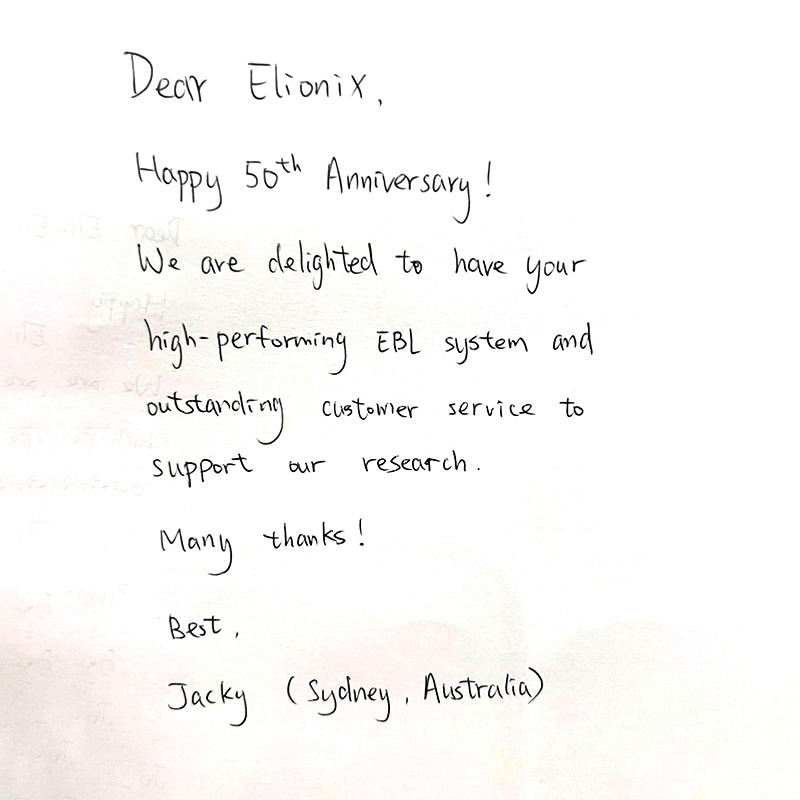 Dear Elionix,
Happy 50th Anniversary!
We are delighted to have your
high-performing EBL system and
outstanding customer service to
support our research.
Many thanks!
Best,
Jacky (Sydney, Australia)